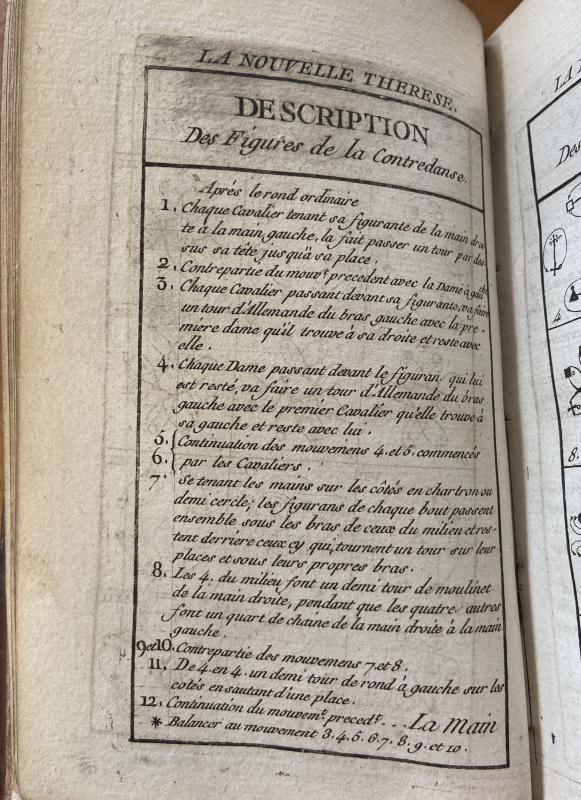 LA NOUVELLE THERESE.
DESCRIPTION
Des Figures de la Contredanse.
Aprés le rond ordinaire
1. Chaque Cavalier tenant sa figurante de la main droi-
te à la main gauche, la fait passer un tour par des-
sus sa tête jusqu'à sa place.
2. Contrepartie du mouvt. precedent avec la Dame à gauche
3. Chaque Cavalier passant devant sa figurante, va faire
un tour d'Allemande du bras gauche avec la pre-
miere dame qu'il trouve à sa droite et reste avec
elle.
4. Chaque Dame passant devant le figuran qui lui
est resté, va faire un tour d'Allemande du bras
gauche avec le premier Cavalier qu'elle trouve à
sa gauche et reste avec lui.
5. Continuation des mouvemens 4. et 5. commencés
6. par les Cavaliers.
7. Se tenant les mains sur les côtés en chartron ou
demi cercle; les figurans de chaque bout passent
ensemble sous les bras de ceux du milieu et res-
tent derriere ceux cy qui, tournent un tour sur leur
places et sous leurs propres bras.
8. Les 4. du milieu font un demi tour de moulinet
de la main droite, pendant que les quatre autres
font un quart de chaine de la main droite à la main
gauche.
9 et 10. Contrepartie des mouvemens 7. et 8.
11. De 4. en 4. un demi tour de rond à gauche sur les
cotés en sautant d'une place.
12. Continuation du mouvemt. precedt. ... La Main
* Balancer au mouvement 3. 4. 5. 6. 7. 8. 9. et 10.
LA
Des
4
8.